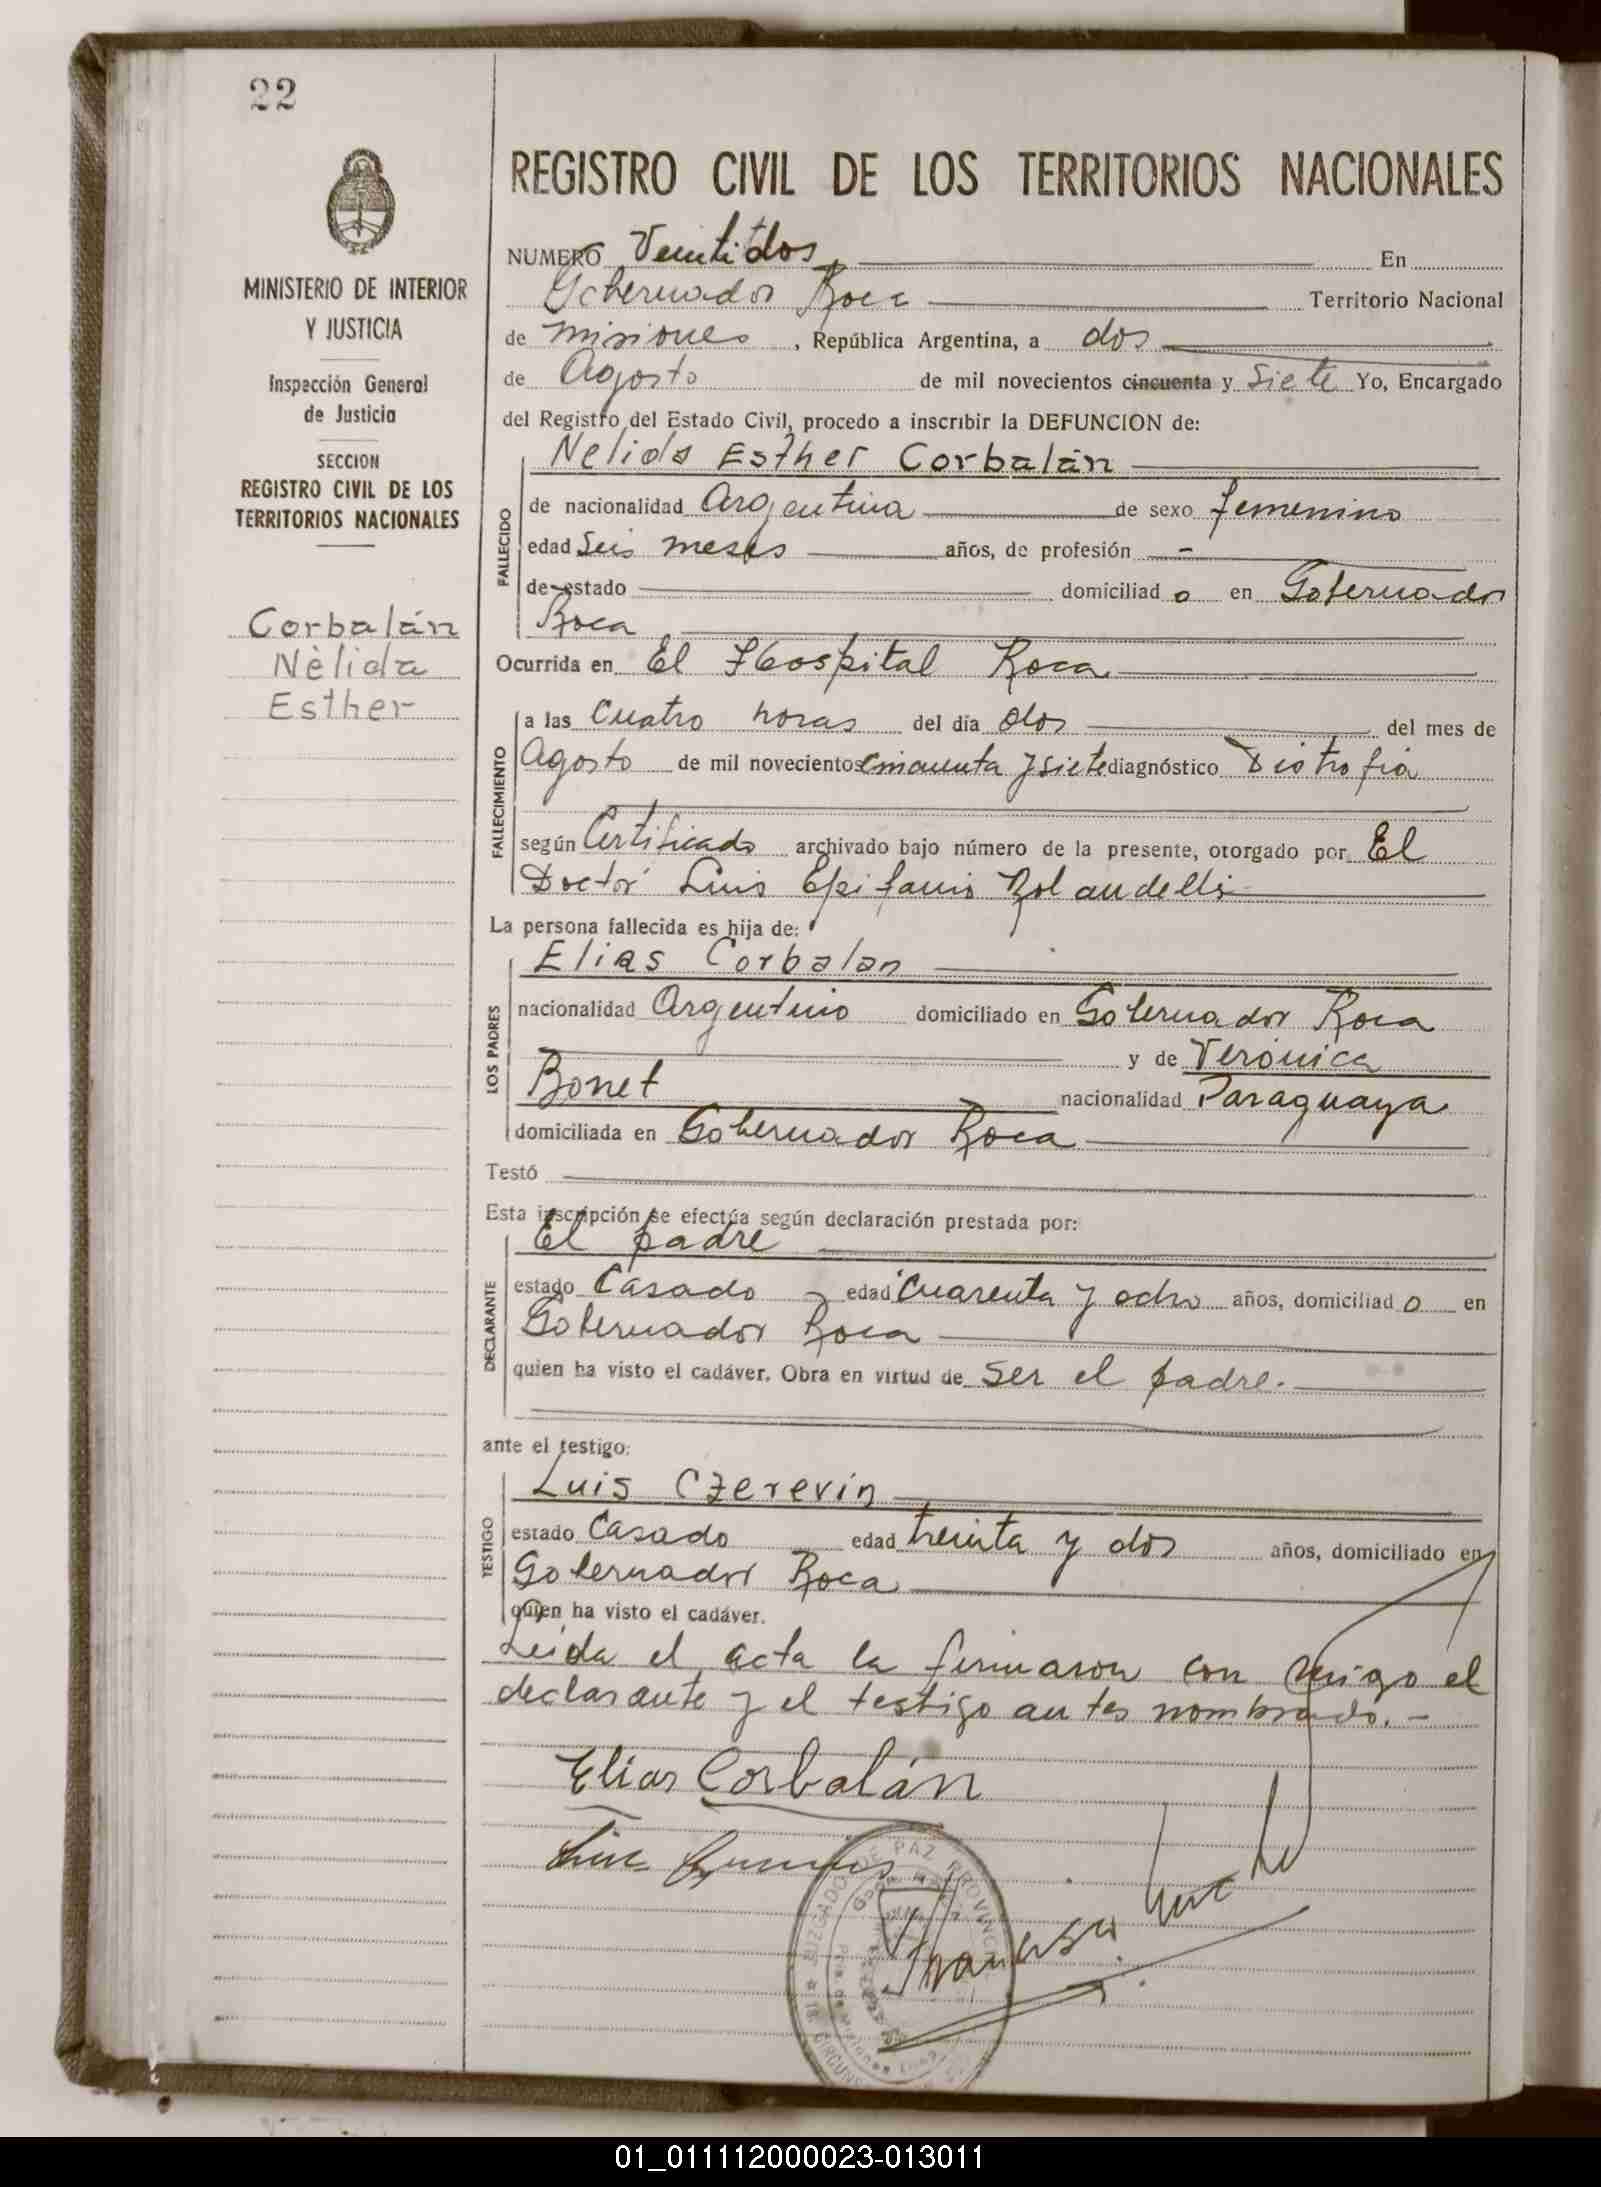 22
REGISTRO CIVIL DE LOS TERRITORIOS NACIONALES
MINISTERIO DE INTERIOR
Y JUSTICIA
Inspección General
de Justicia
SECCION
REGISTRO CIVIL DE LOS
TERRITORIOS NACIONALES
Corbalán
Nèlida
Esther
NUMERO Veintidos En
Gobernador Roca Territorio Nacional
de misiones, República Argentina, a dos
de Agosto de mil novecientos cincuenta y siete Yo, Encargado
del Registro del Estado Civil, procedo a inscribir la DEFUNCION de:
FALLECIDO
Nelida Esther Corbalán
de nacionalidad Argentina de sexo femenino
edad Seis meses años, de profesión -
de estado domiciliad o en Gobernador
Roca
Ocurrida en El Hospital Roca
FALLECIMIENTO
a las Cuatro horas del día dos del mes de
Agosto de mil novecientos cincuenta y siete diagnóstico Distrofia
según Certificado archivado bajo número de la presente, otorgado por El
Doctor Luis Epifanio Rolandelli
La persona fallecida es hija de:
LOS PADRES
Elias Corbalan
nacionalidad Argentino domiciliado en Gobernador Roca
y de Verónica
Bonet nacionalidad Paraguaya
domiciliada en Gobernador Roca
Testó
Esta inscripción se efectúa según declaración prestada por:
DECLARANTE
El padre
estado Casado edad Cuarenta y ocho años, domiciliad o en
Gobernador Roca
quien ha visto el cadáver. Obra en virtud de ser el padre.
ante el testigo:
TESTIGO
Luis Czerevin
estado Casado edad treinta y dos años, domiciliado en
Gobernador Roca
quien ha visto el cadáver.
Leida el acta la firmaron con migo el
declarante y el testigo antes nombrado. -
Elias Corbalán
JUZGADO DE PAZ
01_011112000023-013011